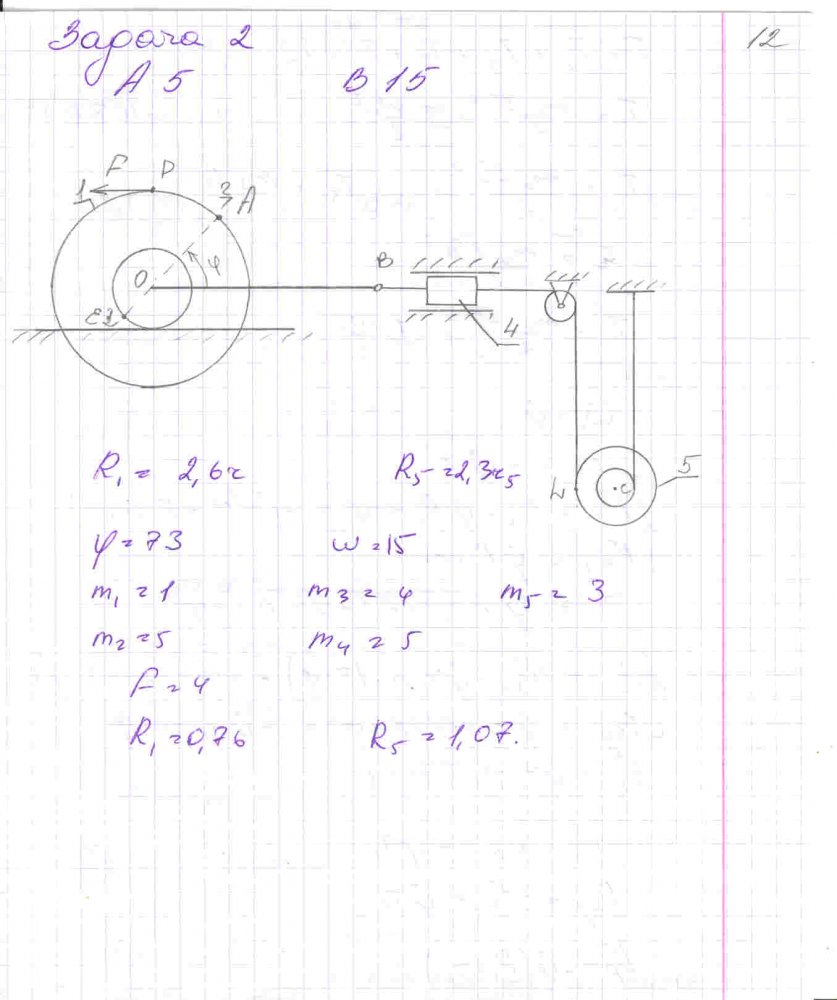 Задача 2
12
A 5 B 15
F P
1 3 A
O φ B
E 2 4
L C 5
R₁ = 2,6r R₅ = 2,3r₅
φ = 73 ω = 15
m₁ = 1 m₃ = 4 m₅ = 3
m₂ = 5 m₄ = 5
F = 4
R₁ = 0,76 R₅ = 1,07.